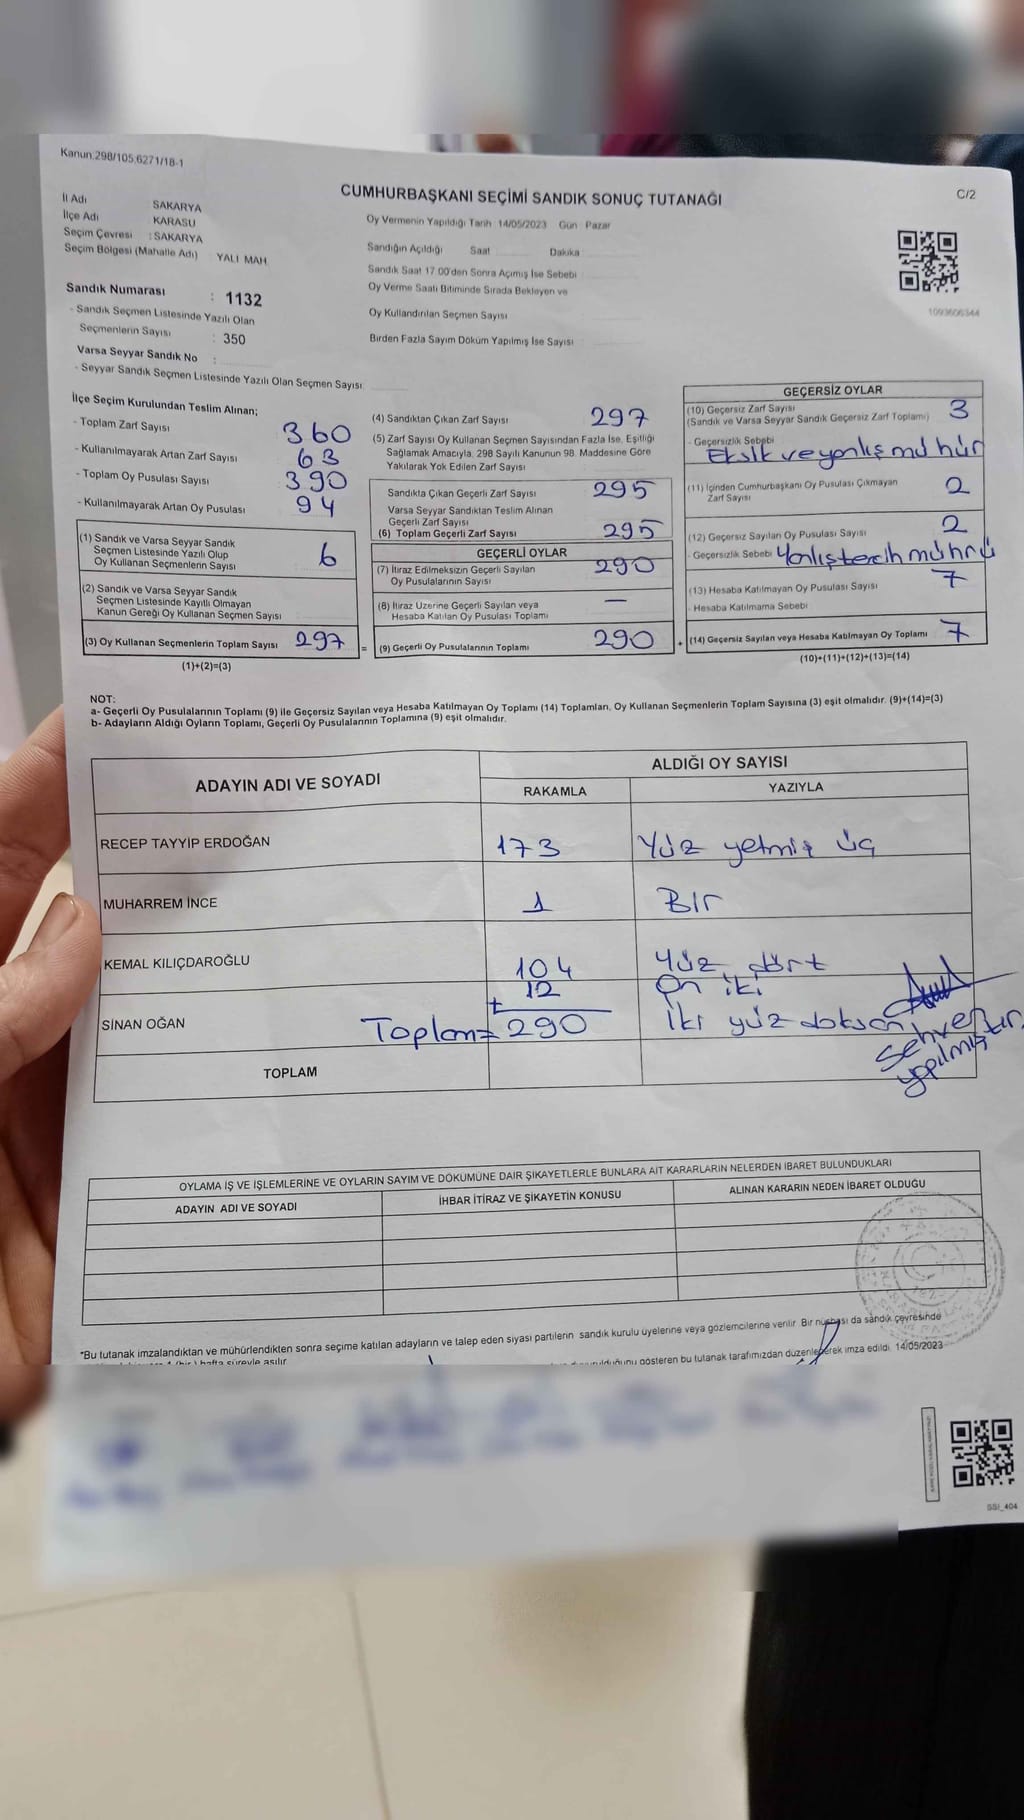 Kanun:298/105;6271/18-1
CUMHURBAŞKANI SEÇİMİ SANDIK SONUÇ TUTANAĞI
C/2
İl Adı SAKARYA
İlçe Adı KARASU
Seçim Çevresi : SAKARYA
Seçim Bölgesi (Mahalle Adı) : YALI MAH.
Oy Vermenin Yapıldığı Tarih 14/05/2023 Gün Pazar
Sandığın Açıldığı Saat Dakika
Sandık Saat 17.00'den Sonra Açımış İse Sebebi
Oy Verme Saati Bitiminde Sırada Bekleyen ve
Oy Kullandırılan Seçmen Sayısı
Birden Fazla Sayım Döküm Yapılmış İse Sayısı
1093606344
Sandık Numarası : 1132
- Sandık Seçmen Listesinde Yazılı Olan
Seçmenlerin Sayısı : 350
Varsa Seyyar Sandık No :
- Seyyar Sandık Seçmen Listesinde Yazılı Olan Seçmen Sayısı
İlçe Seçim Kurulundan Teslim Alınan;
- Toplam Zarf Sayısı 360
- Kullanılmayarak Artan Zarf Sayısı 63
- Toplam Oy Pusulası Sayısı 390
- Kullanılmayarak Artan Oy Pusulası 94
(1) Sandık ve Varsa Seyyar Sandık
Seçmen Listesinde Yazılı Olup
Oy Kullanan Seçmenlerin Sayısı 6
(2) Sandık ve Varsa Seyyar Sandık
Seçmen Listesinde Kayıtlı Olmayan
Kanun Gereği Oy Kullanan Seçmen Sayısı
(3) Oy Kullanan Seçmenlerin Toplam Sayısı 297
(1)+(2)=(3)
(4) Sandıktan Çıkan Zarf Sayısı 297
(5) Zarf Sayısı Oy Kullanan Seçmen Sayısından Fazla İse, Eşitliği
Sağlamak Amacıyla, 298 Sayılı Kanunun 98. Maddesine Göre
Yakılarak Yok Edilen Zarf Sayısı
Sandıkta Çıkan Geçerli Zarf Sayısı 295
Varsa Seyyar Sandıktan Teslim Alınan
Geçerli Zarf Sayısı
(6) Toplam Geçerli Zarf Sayısı 295
GEÇERLİ OYLAR
(7) İtiraz Edilmeksizin Geçerli Sayılan
Oy Pusulalarının Sayısı 290
(8) İtiraz Üzerine Geçerli Sayılan veya
Hesaba Katılan Oy Pusulası Toplamı —
= (9) Geçerli Oy Pusulalarının Toplamı 290 +
GEÇERSİZ OYLAR
(10) Geçersiz Zarf Sayısı
(Sandık ve Varsa Seyyar Sandık Geçersiz Zarf Toplamı) 3
- Geçersizlik Sebebi
Eksik ve yanlış mühür
(11) İçinden Cumhurbaşkanı Oy Pusulası Çıkmayan
Zarf Sayısı 2
(12) Geçersiz Sayılan Oy Pusulası Sayısı 2
- Geçersizlik Sebebi Yanlış tercih mührü
(13) Hesaba Katılmayan Oy Pusulası Sayısı 7
- Hesaba Katılmama Sebebi
(14) Geçersiz Sayılan veya Hesaba Katılmayan Oy Toplamı 7
(10)+(11)+(12)+(13)=(14)
NOT:
a- Geçerli Oy Pusulalarının Toplamı (9) ile Geçersiz Sayılan veya Hesaba Katılmayan Oy Toplamı (14) Toplamları, Oy Kullanan Seçmenlerin Toplam Sayısına (3) eşit olmalıdır. (9)+(14)=(3)
b- Adayların Aldığı Oyların Toplamı, Geçerli Oy Pusulalarının Toplamına (9) eşit olmalıdır.
ADAYIN ADI VE SOYADI
ALDIĞI OY SAYISI
RAKAMLA YAZIYLA
RECEP TAYYİP ERDOĞAN 173 Yüz yetmiş üç
MUHARREM İNCE 1 Bir
KEMAL KILIÇDAROĞLU 104 Yüz dört
12 On iki
SİNAN OĞAN Toplam= + 290 İki yüz doksan
sehven
yapılmıştır.
TOPLAM
OYLAMA İŞ VE İŞLEMLERİNE VE OYLARIN SAYIM VE DÖKÜMÜNE DAİR ŞİKAYETLERLE BUNLARA AİT KARARLARIN NELERDEN İBARET BULUNDUKLARI
ADAYIN ADI VE SOYADI
İHBAR İTİRAZ VE ŞİKAYETİN KONUSU
ALINAN KARARIN NEDEN İBARET OLDUĞU
*Bu tutanak imzalandıktan ve mühürlendikten sonra seçime katılan adayların ve talep eden siyasi partilerin sandık kurulu üyelerine veya gözlemcilerine verilir. Bir nüshası da sandık çevresinde
hafta süreyle asılır
gösteren bu tutanak tarafımızdan düzenlenerek imza edildi. 14/05/2023
SSI_404